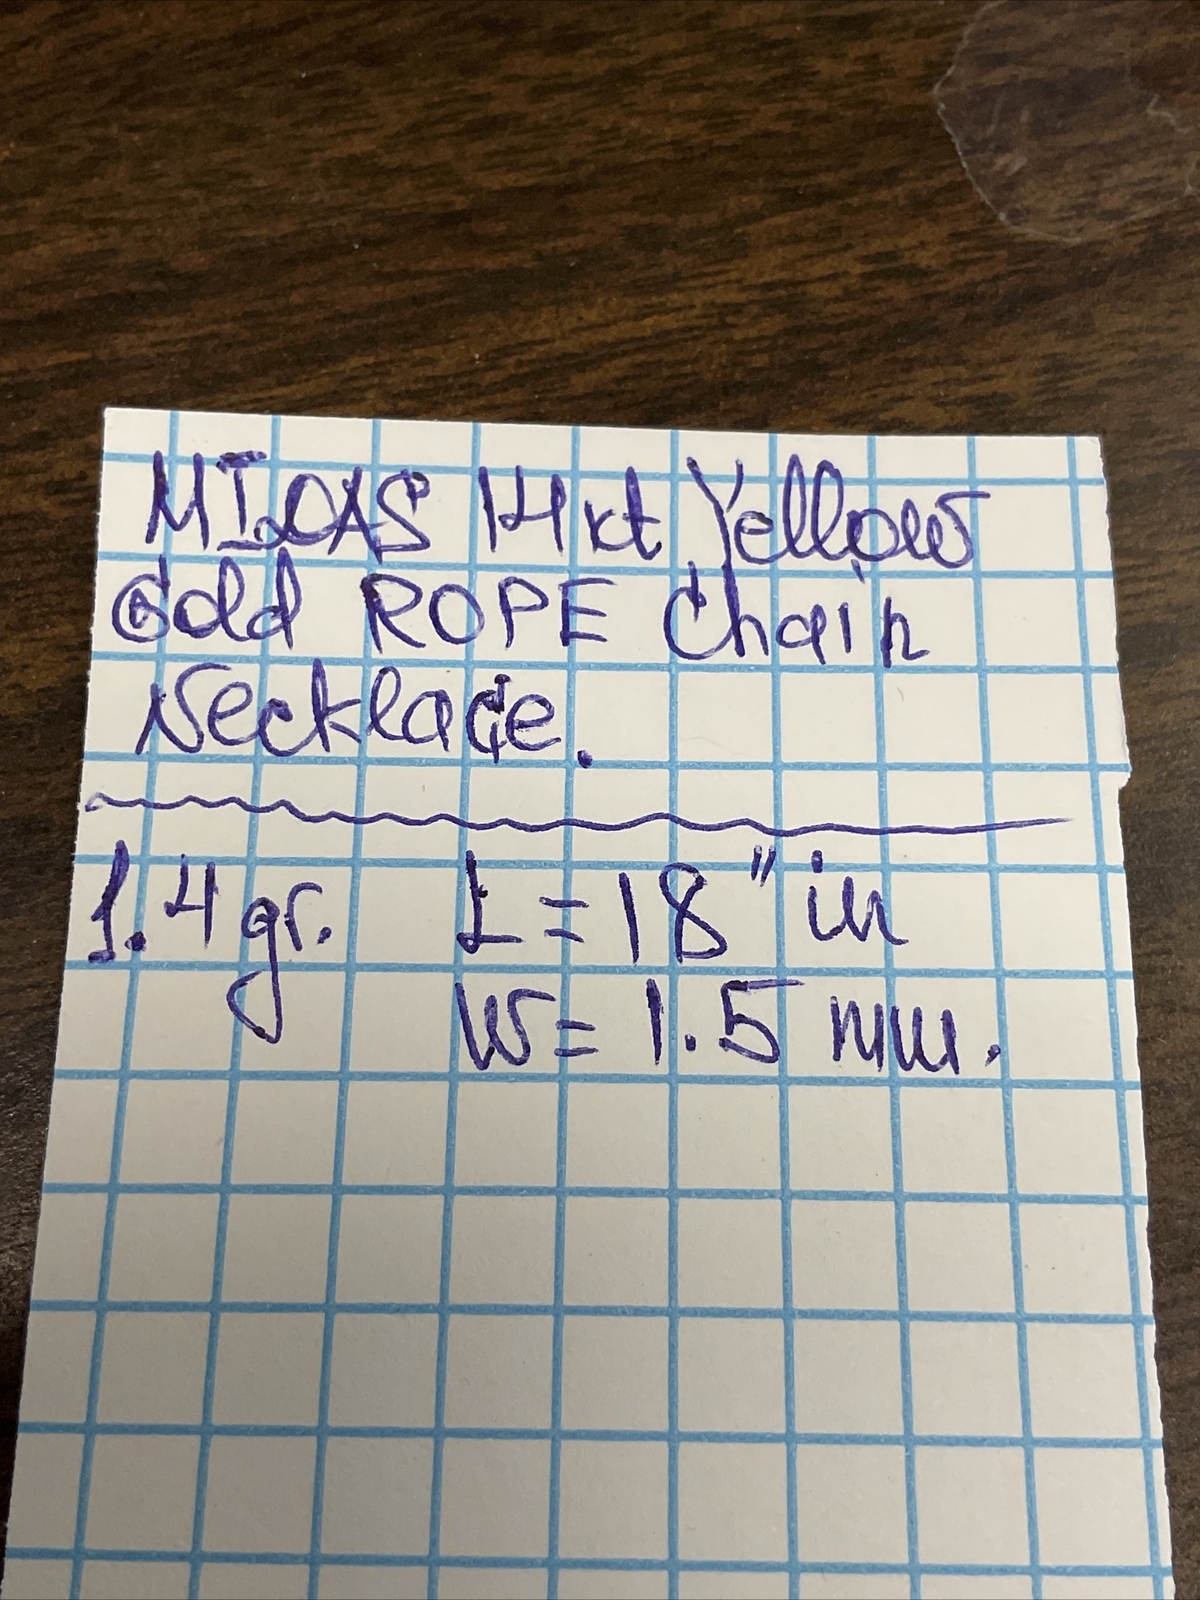 MIDAS 14kt Yellow
Gold ROPE Chain
Necklace.
1.4 gr. L = 18" in
W = 1.5 mm.